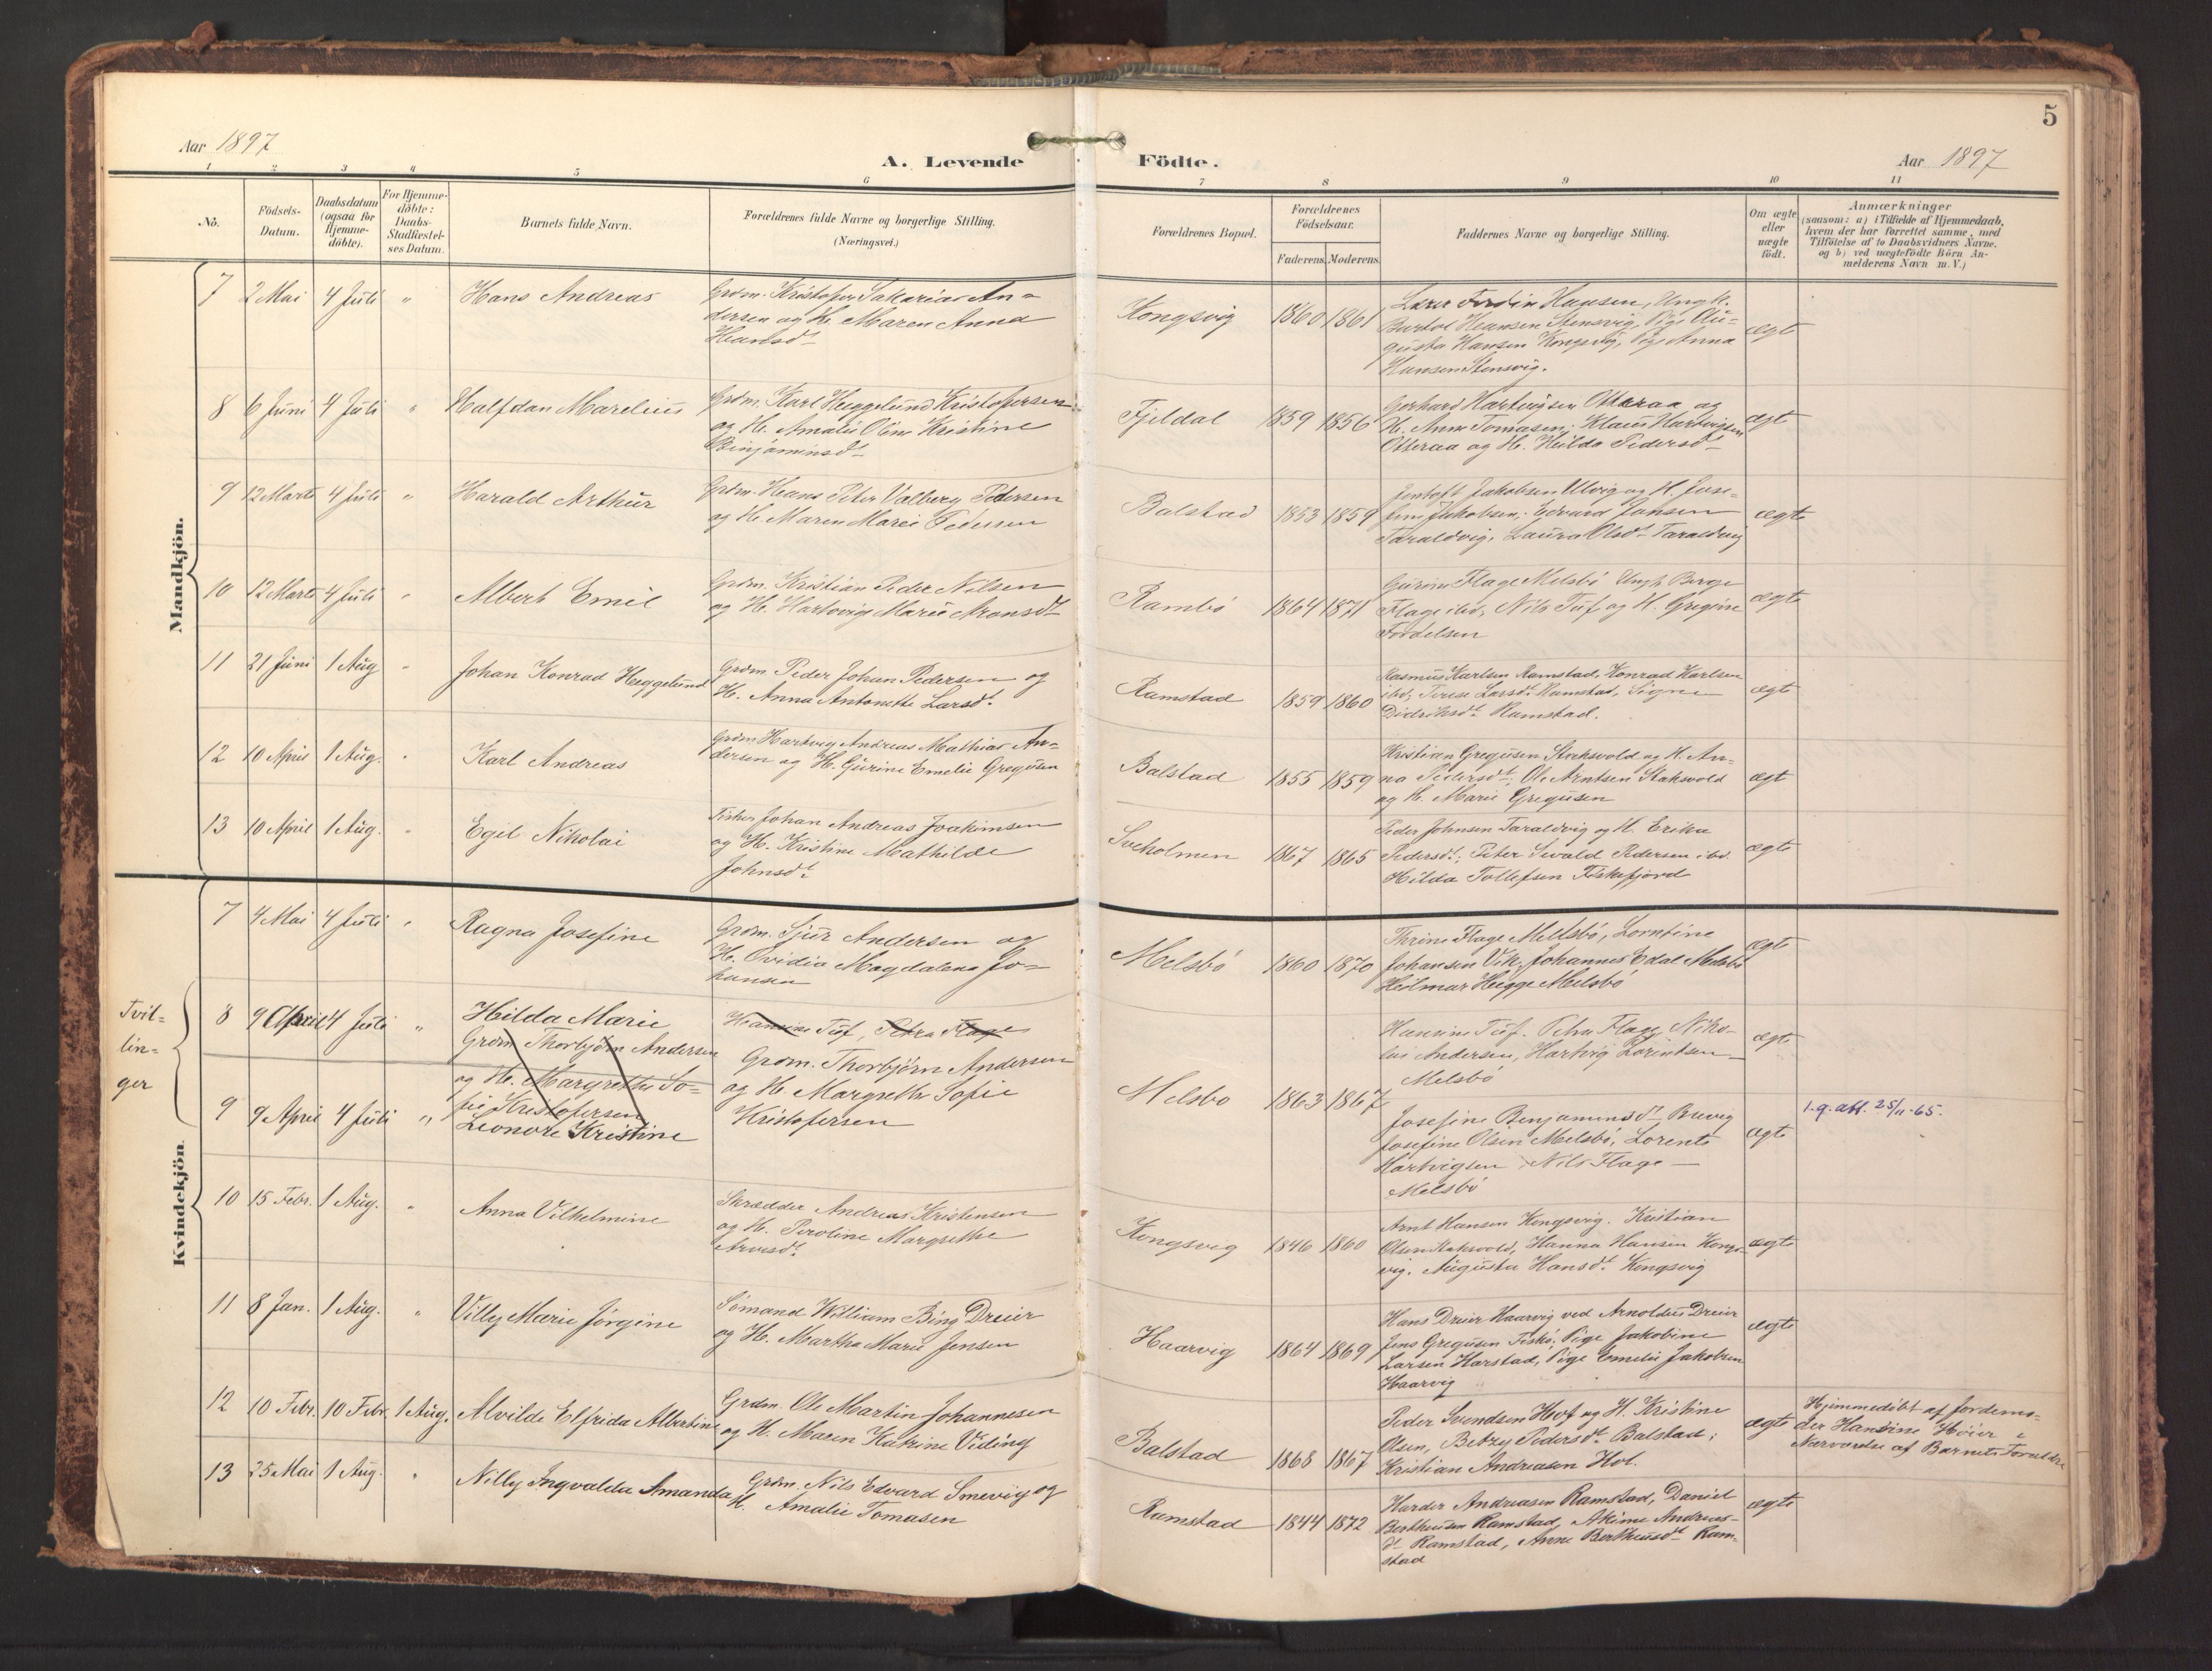 5
Aar 1897
A. Levende Födte.
Aar 1897
1 2 3 4 5 6 7 8 9 10 11
No.
Födsels-
Datum.
Daabsdatum
(ogsaa for
Hjemme-
döbte).
For Hjemme-
döbte:
Daabs-
Stadfæstel-
ses Datum.
Barnets fulde Navn.
Forældrenes fulde Navne og borgerlige Stilling.
(Næringsvei.)
Forældrenes Bopæl.
Forældrenes
Födselsaar.
Faderens. Moderens.
Faddernes Navne og borgerlige Stilling.
Om ægte
eller
uægte
födt.
Anmærkninger
(saasom: a) i Tilfælde af Hjemmedaab,
hvem der har forrettet samme, med
Tilföielse af to Daabsvidners Navne,
og b) ved uægtefödte Börn An-
melderens Navn m. V.)
Mandkjön.
7 2 Mai 4 Juli " Hans Andreas
Grdm. Kristofer Sakarias An-
dersen og H. Maren Anna
Hansdt
Kongsvig 1860 1861
Fredin Hansen, Ungk.
Bertol Hansen Stensvig, Pige Au-
gusta Hansen Kongsvig, Pige Anna
Hansen Stensvig.
ægte
8 6 Juni 4 Juli " Halfdan Marelius
Grdm. Karl Heggelund Kristofersen
og H. Amalie Oline Kristine
Binjaminsdt
Fjeldal 1859 1856
Gerhard Hartvigsen Otteraa og
H. Anne Tomasen; Klaus Hartvigsen
Otteraa og H. Hilda Pedersdt
ægte
9 12 Marts 4 Juli " Harald Arthur
Grdm. Hans Peter Valberg Pedersen
og H. Maren Marie Pedersen
Balstad 1853 1859
Jentoft Jakobsen Ulvig og H. Jose-
fine Jakobsen; Edvard Jansen
Taraldvig, Laura Olsdt Taraldvig
ægte
10 12 Marts 4 Juli " Albert Emil
Grdm. Kristian Peder Nilsen
og H. Hartvige Marie Aronsdt
Rambö 1864 1871
Gurine Flage Melsbö Ungk. Berge
Flage ibd, Nils Tuf og H. Gregine
Fordelsen
ægte
11 21 Juni 1 Aug " Johan Konrad Heggelund
Grdm Peder Johan Pedersen og
H. Anna Antonette Larsdt.
Ramstad 1859 1860
Rasmus Karlsen Ramstad, Konrad Karlsen
ibd; Terese Larsdt Ramstad, Signe
Didriksdt Ramstad.
ægte
12 10 April 1 Aug. " Karl Andreas
Grdm Hartvig Andreas Mathias An-
dersen og H. Gurine Emelie Gregusen
Balstad 1855 1859
Kristian Gregusen Stoksvold og H. An-
na Pedersdt; Ole Arntsen Stoksvold
og H. Marie Gregusen
ægt
13 10 April 1 Aug. " Egil Nikolai
Fisker Johan Andreas Joakimsen
og H. Kristine Mathilde
Johnsdt
Sveholmen 1867 1865
Peder Johnsen Taraldvig og H. Erika
Pedersdt; Peter Sevald Pedersen ibd.
Hilda Tollefsen Fiskefjord
ægte
Kvindekjön.
7 4 Mai 4 Juli " Ragna Josefine
Grdm. Sjur Andersen og
H. Ovidia Magdalena Jo-
hansen
Melsbö 1860 1870
Thrine Flage Melsbö, Lorntine
Johansen Vik, Johannes Edal Melsbö
Hilmar Hegge Melsbö
ægte
Tvil-
lin-
ger
8 9 April 4 Juli " Hilda Marie
Grdm Thorbjörn Andersen
og H. Margrethe So-
fie Kristofersen
Hansine Tuf, Petra Flage
Grdm. Thorbjörn Andersen
og H. Margrethe Sofie
Kristofersen
Melsbo 1863 1867
Hansine Tuf. Petra Flage, Niko-
lai Andersen, Hartvig Lorintsen
Melsbö
ægte
9 9 April 4 Juli " Leonore Kristine
Josefine Benjaminsdt Brevig
Josefine Olsen Melsbö, Lorents
Hartvigsen, Nils Flage
Melsbö
ægte
l.q. att. 25/11-65.
10 15 Febr. 1 Aug. " Anna Vilhelmine
Skrædder Andreas Kristensen
og H. Peroline Margrethe
Arvesdt
Kongsvig 1846 1860
Arnt Hansen Kongsvig. Kristian
Olsen Stoksvold, Hanna Hansen Kongs-
vig, Augusta Hansdt. Kongsvig
ægte
11 8 Jan. 1 Aug. " Villy Marie Jörgine
Sömand William Bing Dreier
og H. Martha Marie Jensen
Haarvig 1864 1869
Hans Dreier Haarvig ved Arnoldus Dreier
Jens Gregusen Fiskö; Pige Jakobine
Larsen Harstad, Pige Emelie Jakobsen
Haarvig
ægte
12 10 Febr. 10 Febr. 1 Aug. Alvilde Elfrida Albertine
Grdm. Ole Martin Johannesen
og H. Maren Katrine Viding
Balstad 1868 1867
Peder Svendsen Hof og H. Kristine
Olsen, Betzy Pedersdt Balstad;
Kristian Andreasen Hol.
ægte
Hjemmedöbt af Jordemo-
der Hansine Höier i
Nærværelse af Barnets Forældre
13 25 Mai 1 Aug. " Nilly Ingvalda Amanda
Grdm. Nils Edvard Smevig og
H. Amalie Tomasen
Ramstad 1844 1872
Harder Andreasen Ramstad, Daniel
Bertheusen Ramstad, Akime Andreas-
dt Ramstad, Anne Bertheusdt Ram-
stad
ægte